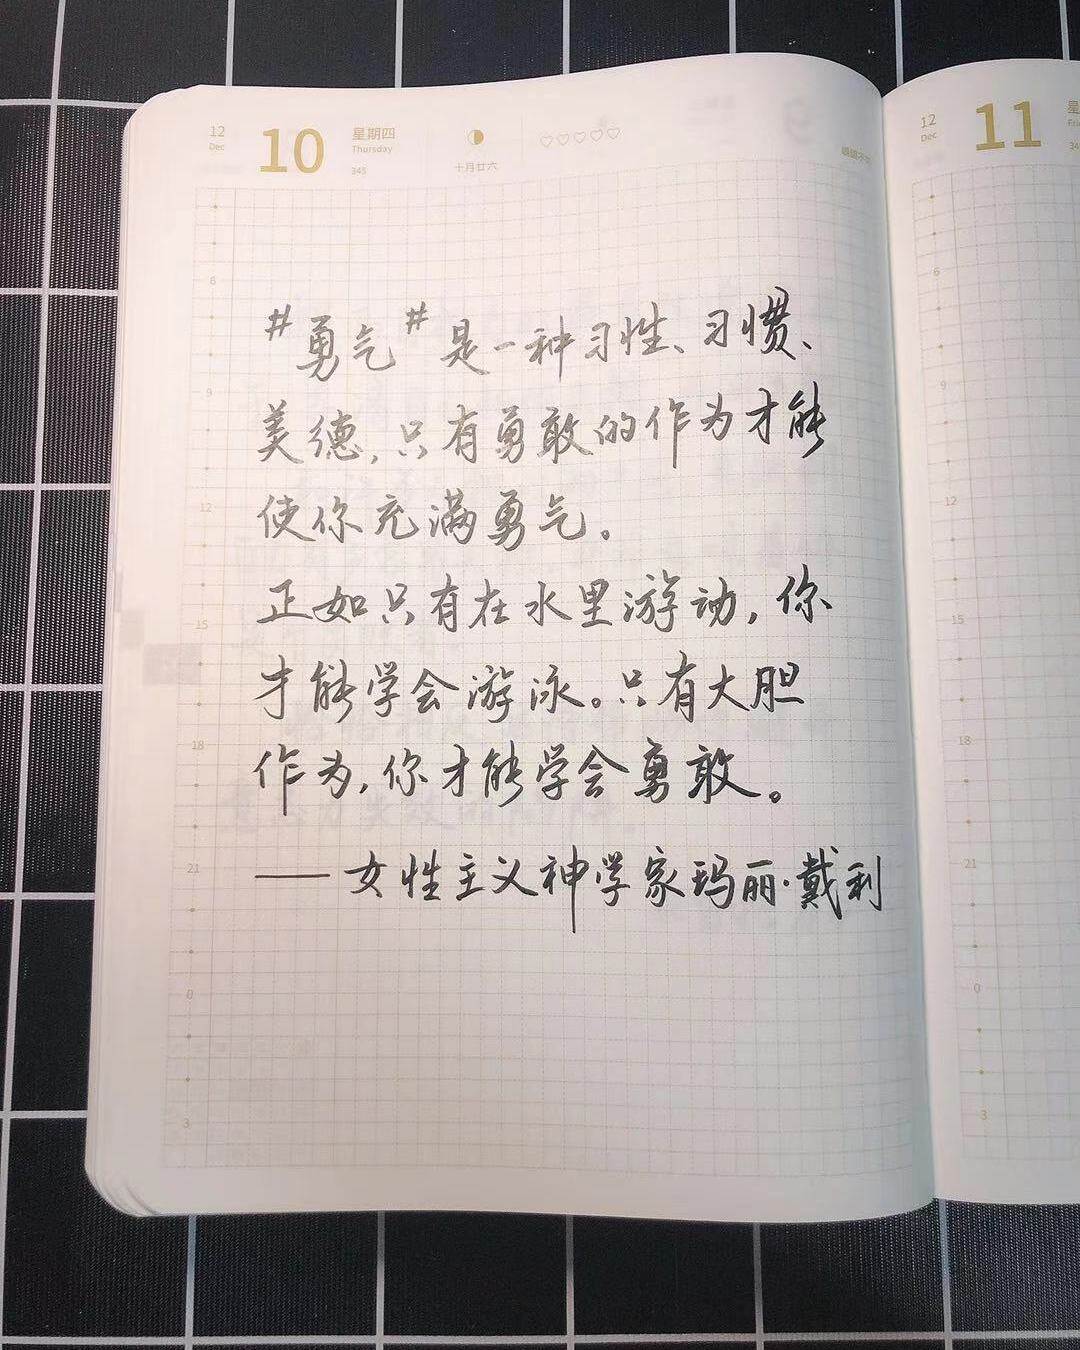 12 Dec 10 星期四 Thursday 345 十月廿六 ♡♡♡♡♡
12 Dec 11 星
6
9
12
15
18
21
0
3
#勇气#是一种习性、习惯、
美德,只有勇敢的作为才能
使你充满勇气。
正如只有在水里游动,你
才能学会游泳。只有大胆
作为,你才能学会勇敢。
——女性主义神学家玛丽·戴利
6
9
12
15
18
21
0
3